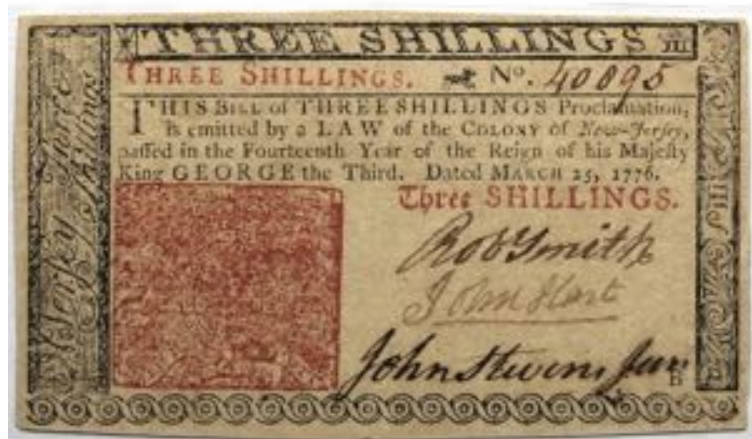 THREE SHILLINGS III
THREE SHILLINGS. No. 40095
THIS BILL of THREE SHILLINGS Proclamation,
is emitted by a LAW of the COLONY of New-Jersey,
paſſed in the Fourteenth Year of the Reign of his Majeſty
King GEORGE the Third. Dated MARCH 25, 1776.
Three SHILLINGS.
Robt Smith
John Hart
John Stevens Junr
B
N. Jersey Three
Shillings